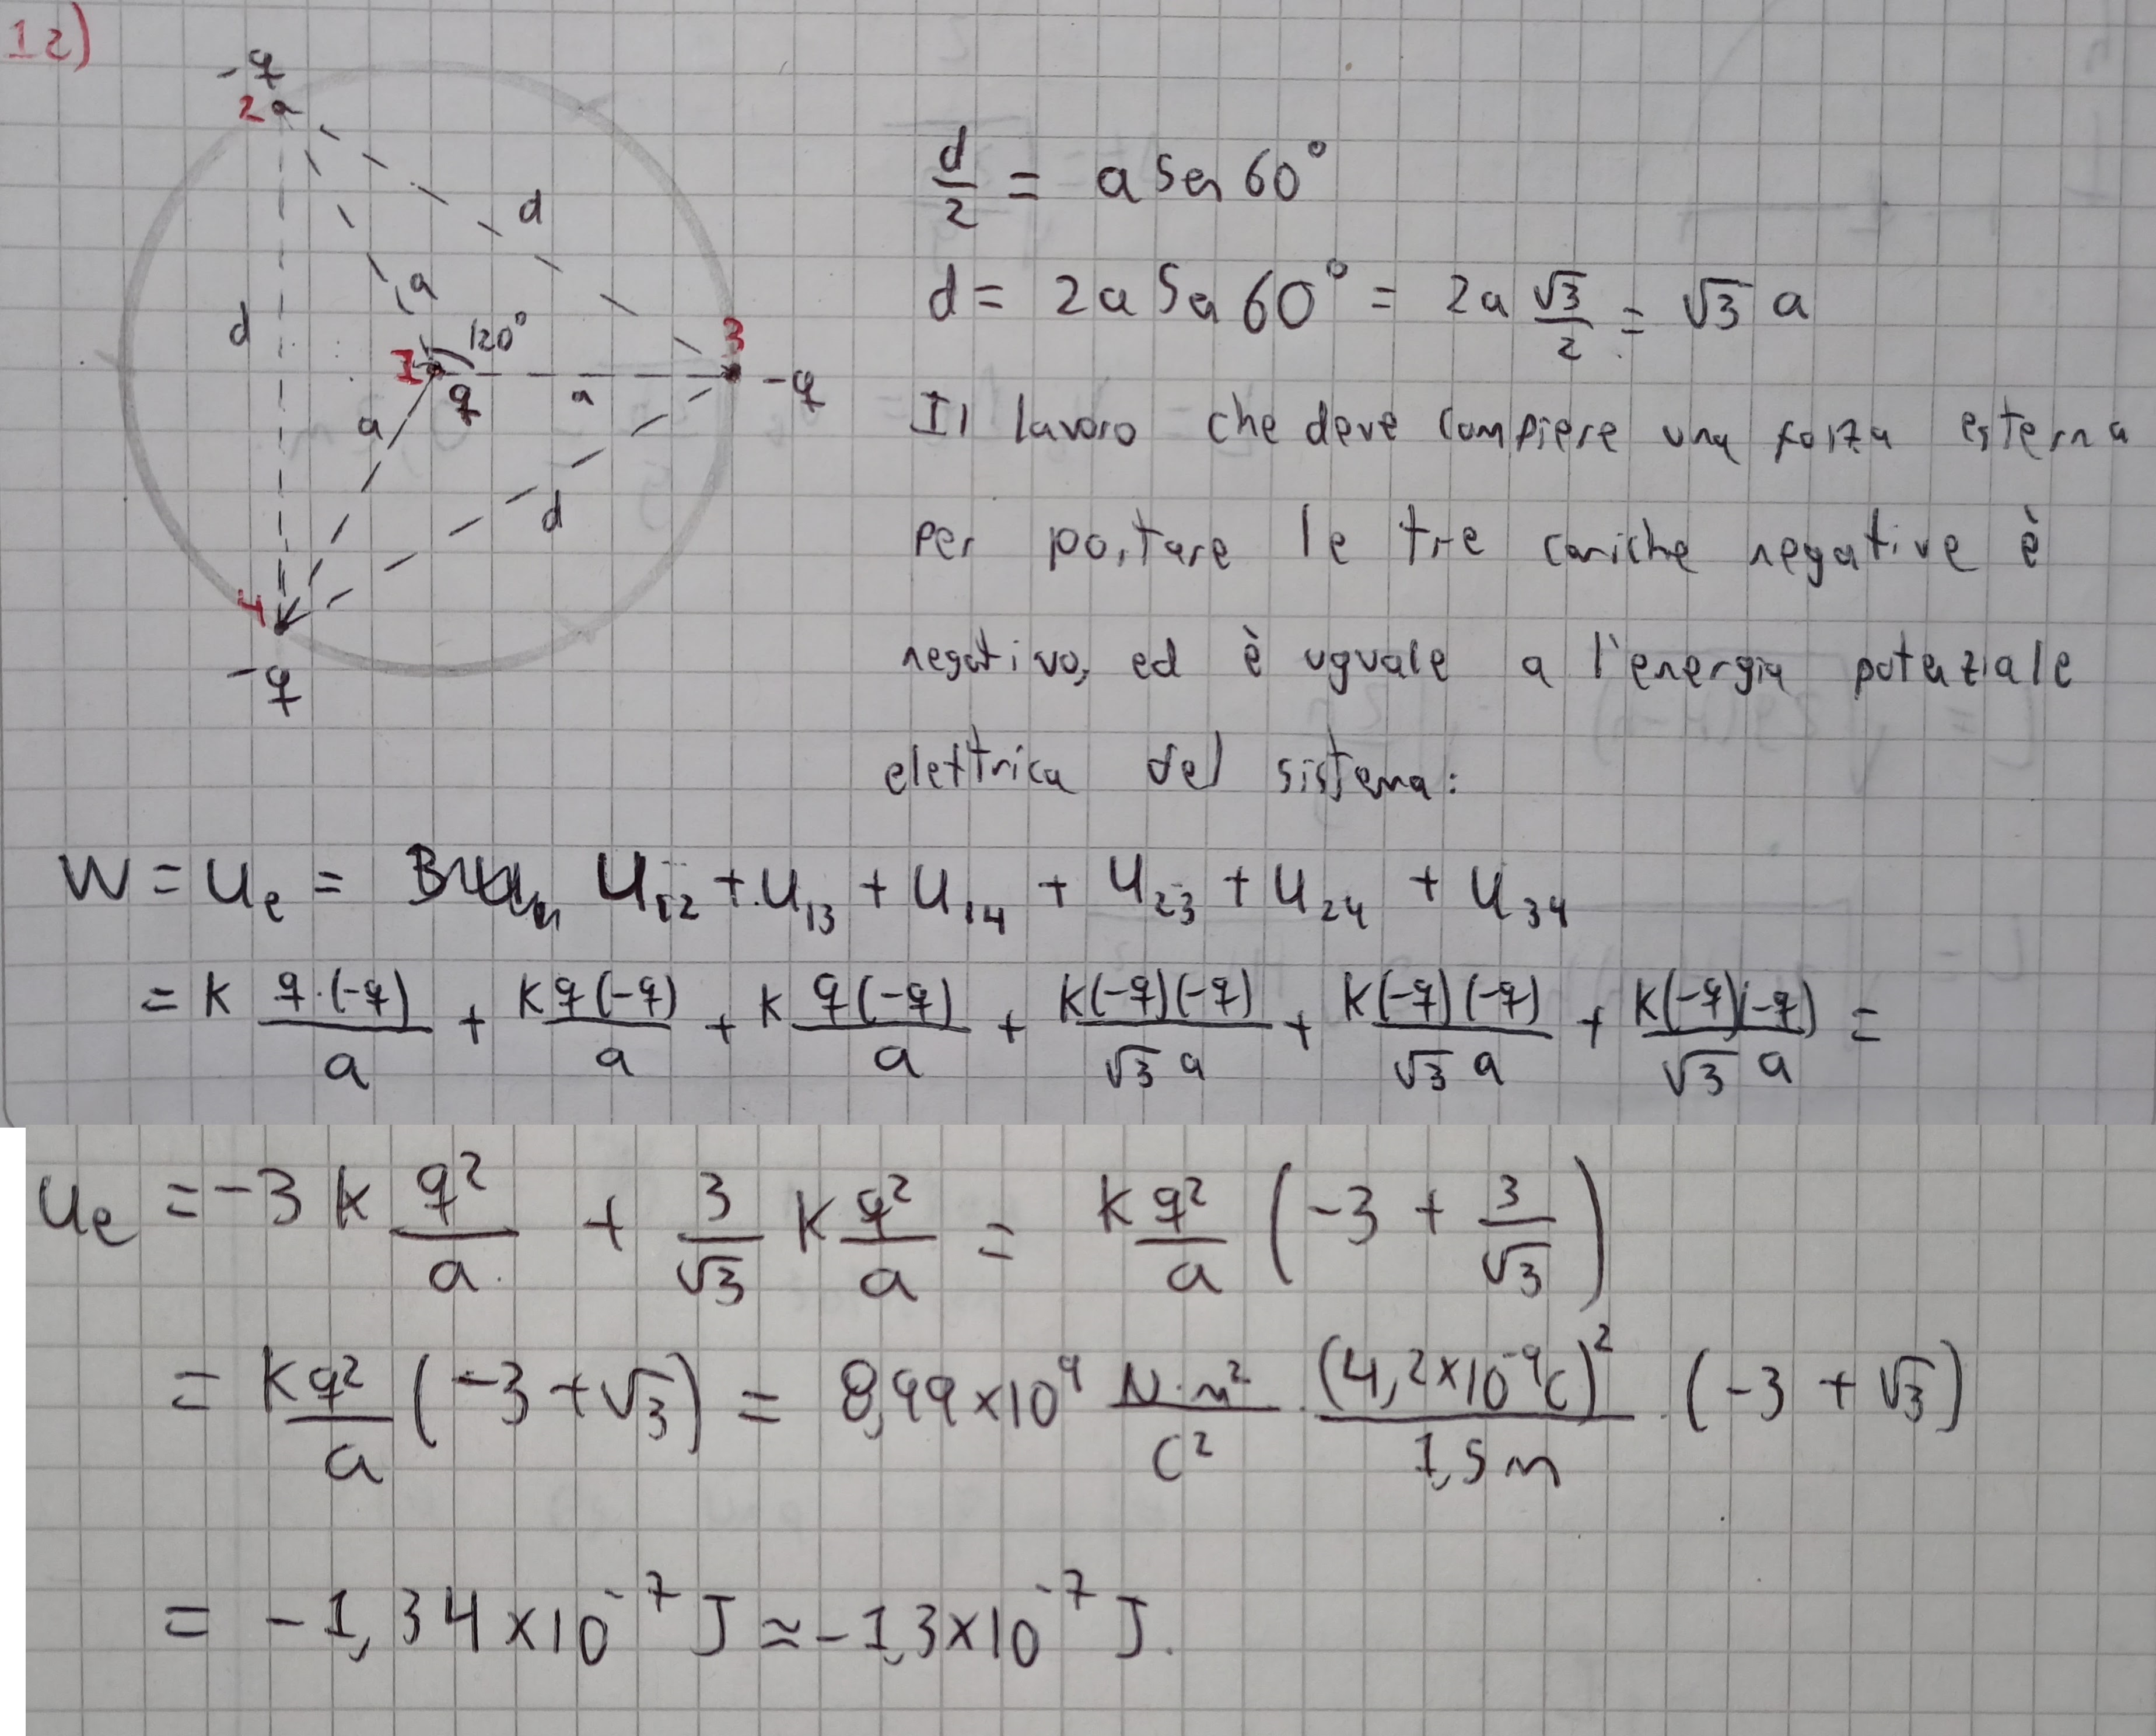 12)
-q
2
d
a
d
120°
1
q
a
3
-q
a
d
4
-q
d/2 = a Sen 60°
d = 2a Sen 60° = 2a √3/2 = √3 a
Il lavoro che deve compiere una forza esterna
per portare le tre cariche negative è
negativo, ed è uguale a l'energia potenziale
elettrica del sistema:
W = Ue = U12 + U13 + U14 + U23 + U24 + U34
= K q·(-q)/a + K q(-q)/a + K q(-q)/a + K(-q)(-q)/√3 a + K(-q)(-q)/√3 a + K(-q)(-q)/√3 a =
Ue = -3 K q²/a + 3/√3 K q²/a = K q²/a (-3 + 3/√3)
= K q²/a (-3 + √3) = 8,99×10⁹ N·m²/C² · (4,2×10⁻⁹C)²/1,5 m · (-3 + √3)
= -1,34×10⁻⁷ J ≈ -1,3×10⁻⁷ J.